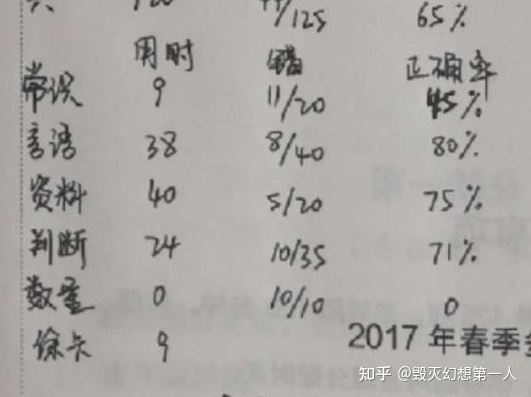 共 120 44/125 65%
用时 错 正确率
常识 9 11/20 45%
言语 38 8/40 80%
资料 40 5/20 75%
判断 24 10/35 71%
数量 0 10/10 0
涂卡 9
2017 年春季
知乎 @毁灭幻想第一人